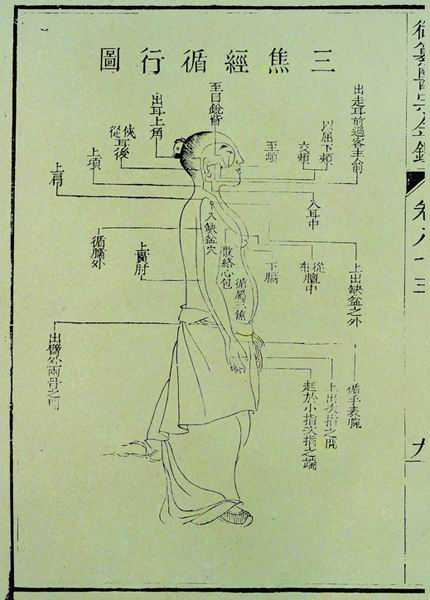 三焦經循行圖
出走耳前過客主人前
以屈下頰
交頰
至䪼
至目銳眥
出耳上角
俠耳後
從耳後
上項
上肩
入耳中
入缺盆穴
散絡心包
循屬三焦
下膈
從膻中
布膻中
上出缺盆之外
循臑外
上貫肘
出臂外兩骨之間
循手表腕
上出次指之間
起於小指次指之端
御纂醫宗金鑑
卷八十三
九